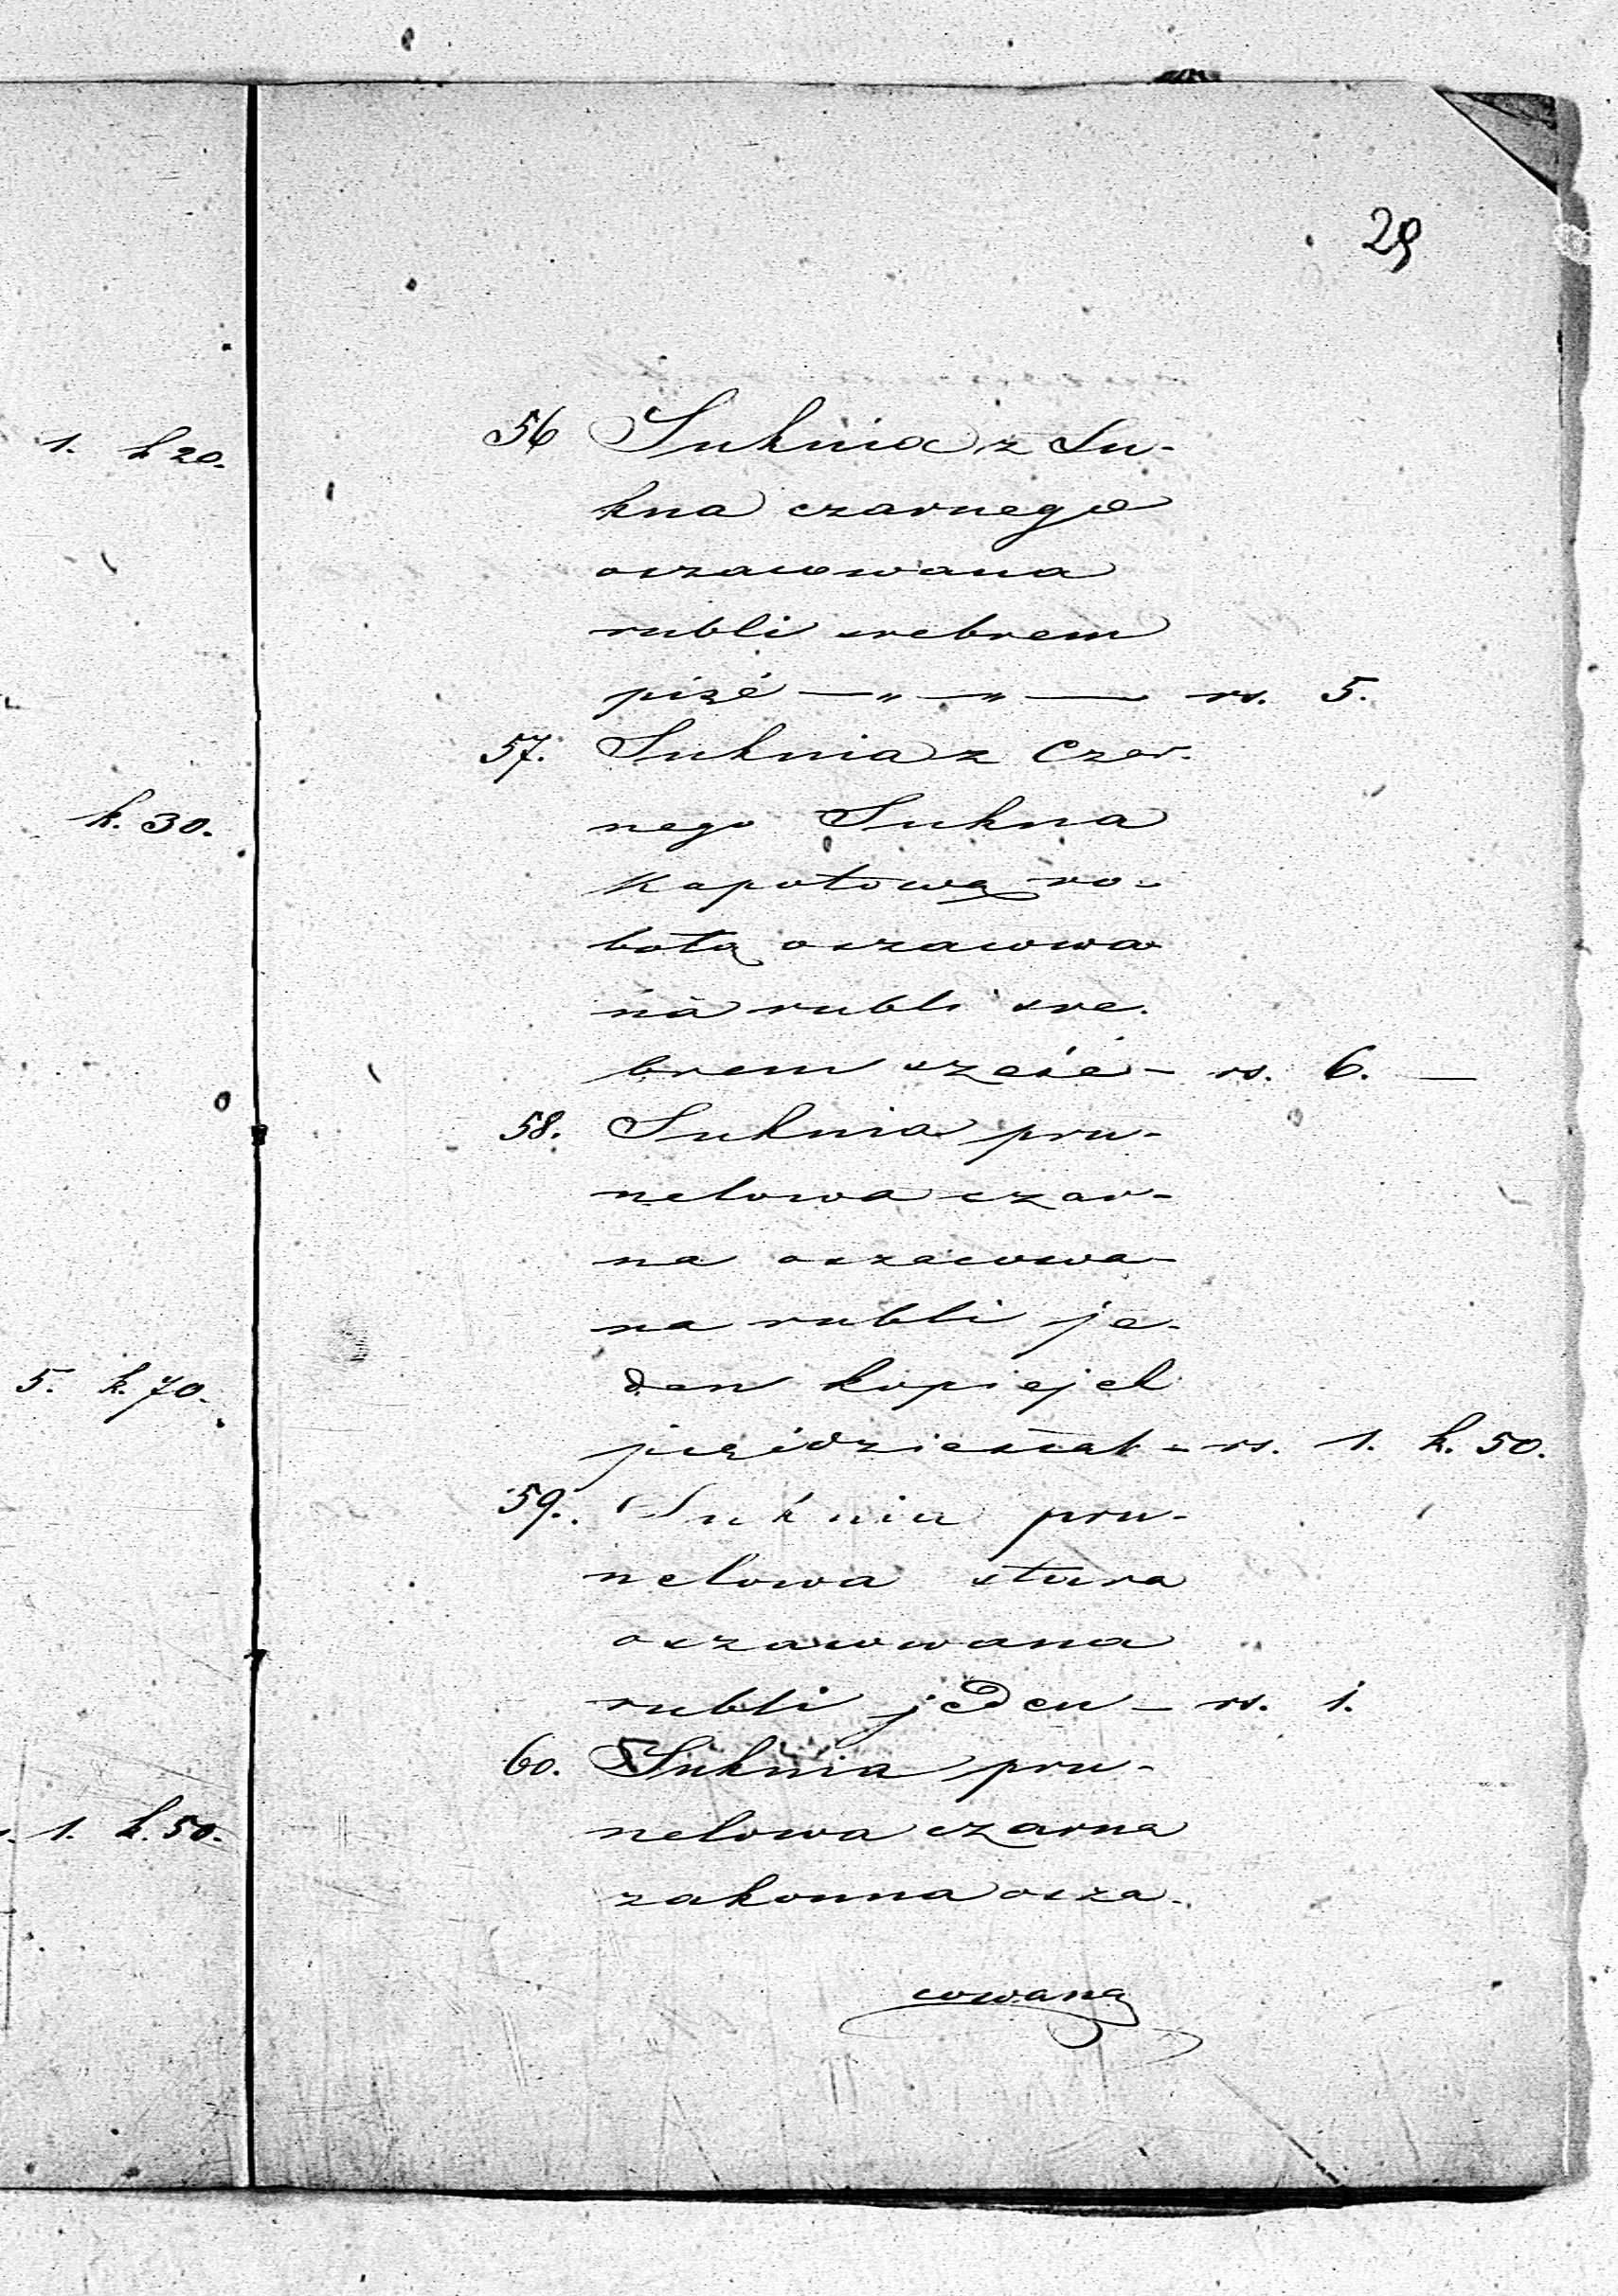 1. k 20.
k. 30.
5. k. 70.
1. k. 50.
29
56 Suknia z Su-
kna czarnego
oszacowana
rubli srebrem
pięć — „ — „ — rs. 5.
57. Suknia z Czar-
nego Sukna
Kapotową ro-
botą oszacowa
na rubli sre.
brem sześć – rs. 6. —
58. Suknia pru-
nelowa czar-
na oszacowa-
na rubli je-
den kopiejek
pięćdziesiąt – rs. 1. k. 50.
59. Suknia pru-
nelowa stara
oszacowana
rubli jeden – rs. 1.
60. Suknia pru-
nelowa czarna
zakonna osza-
cowana